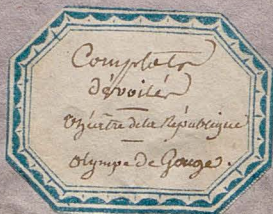 Complots
dévoilés
Théâtre de la République
Olympe de Gouge.